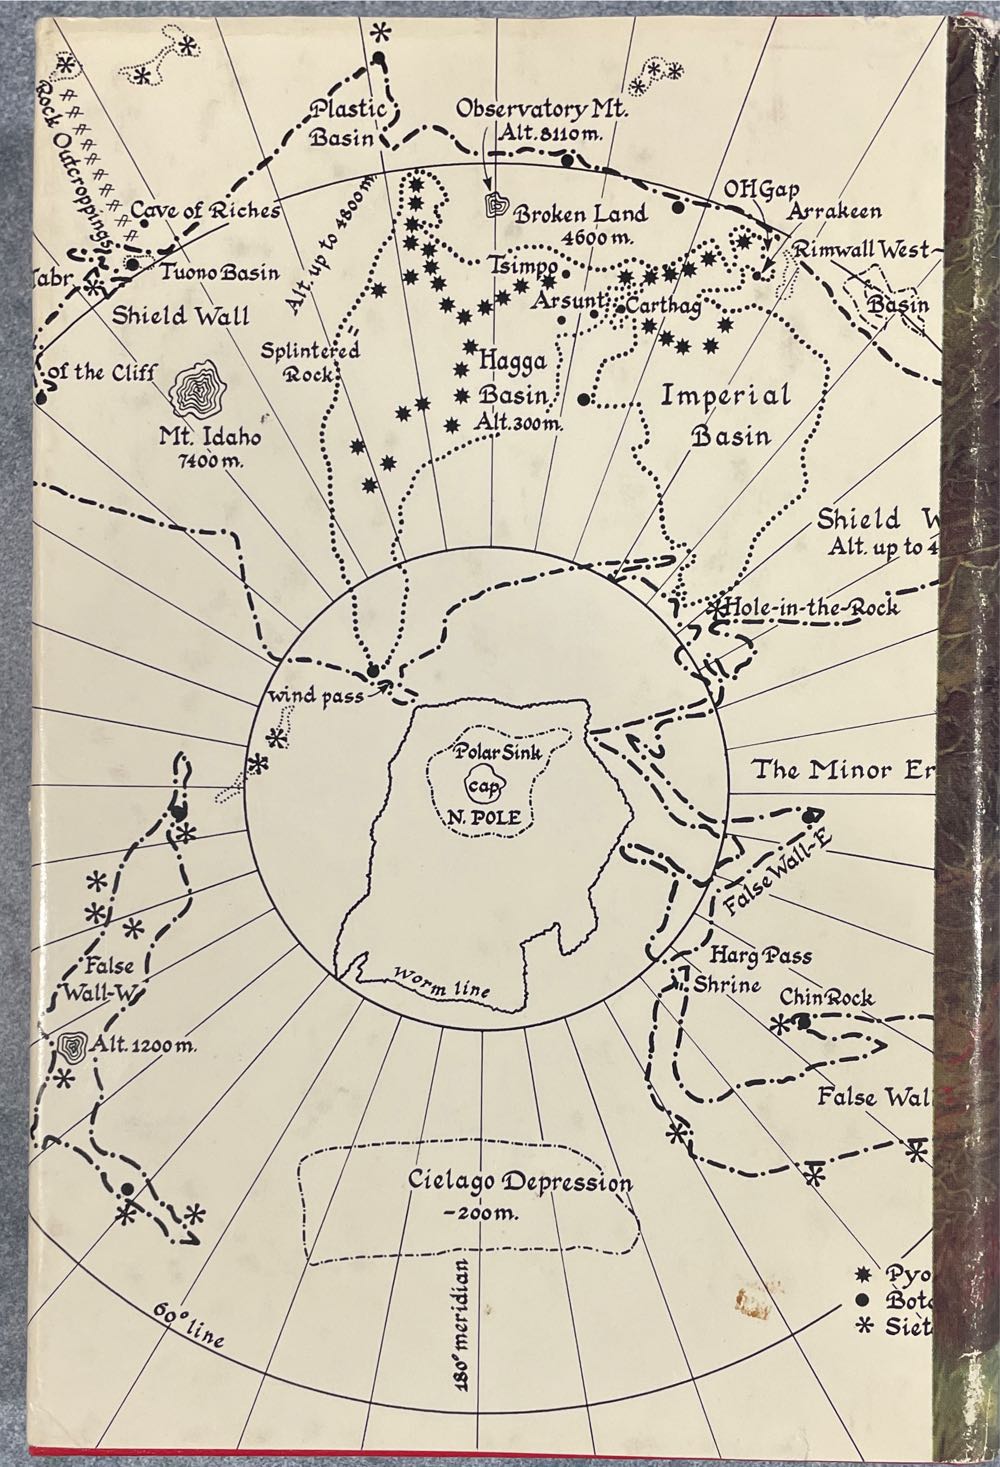 Plastic
Basin
Observatory Mt.
Alt. 8110 m.
Rock Outcroppings
Cave of Riches
Alt. up to 4800m.
Broken Land
4600 m.
OH Gap
Arrakeen
Rimwall West-
Tabr
Tuono Basin
Tsimpo
Arsunt
Carthag
Basin
Shield Wall
Splintered
Rock
Hagga
Basin
Alt. 300m.
Imperial
Basin
of the Cliff
Mt. Idaho
7400 m.
Shield W
Alt. up to 4
Hole-in-the-Rock
wind pass
Polar Sink
cap
N. POLE
The Minor Er
False Wall-E
False
Wall-W
Alt. 1200 m.
worm line
Harg Pass
Shrine
Chin Rock
False Wal
Cielago Depression
-200m.
180° meridian
60° line
Pyo
Bota
Siet